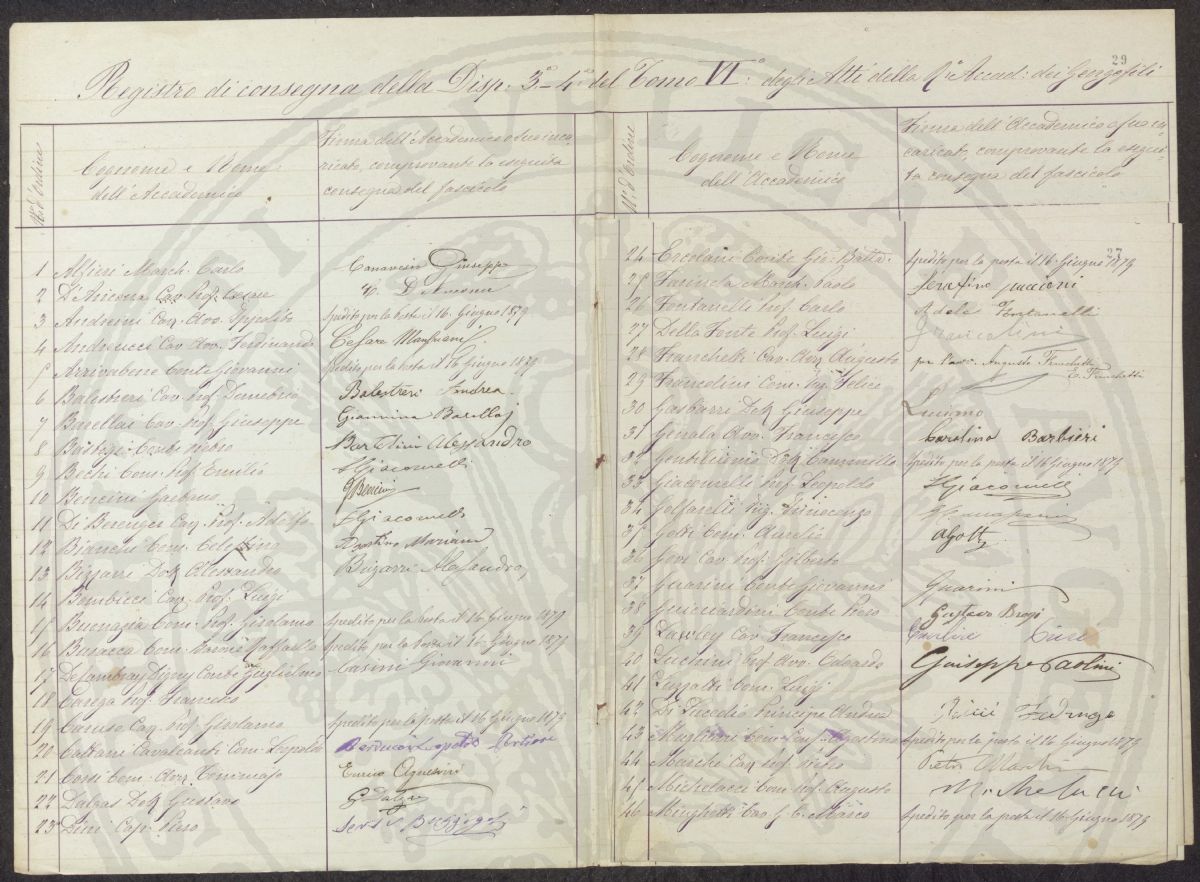 29
Registro di consegna della Disp. 3ª-4ª del Tomo VI° degli Atti della R. Accad. dei Georgofili
N.° d'Ordine
Cognome e Nome
dell'Accademico
Firma dell'Accademico o suo inca,
ricato, comprovante la eseguita
consegna del fascicolo
1 Alfieri March. Carlo Giuseppe
2 D'Ancona Cav. Prof. Cesare D'Ancona
3 Andreini Cav. Avv. Ippolito Spedito per la posta il 16. Giugno 1879
4 Andreucci Cav. Avv. Ferdinando Cesare
5 Arrivabene Conte Giovanni Spedito per la posta il 16 Giugno 1879
6 Balestrieri Cav. Prof. Demetrio Balestreri Andrea
7 Barellai Cav. Prof. Giuseppe Giannina Barellaj
8 Bastogi Conte Pietro Bartolini Alessandro
9 Bechi Com. Prof. Emilio Giacomelli
10 Bencini Gaetano GBencini
11 Di Berenger Cav. Prof. Adolfo Giacomelli
12 Bianchi Com. Celestino Agostino Mariani
13 Bizzarri Dott. Alessandro Bizzarri Alessandro
14 Bombicci Cav. Prof. Luigi
15 Buonazia Com. Prof. Girolamo Spedito per la posta il 16 Giugno 1879
16 Busacca Com. Raffaello Spedito per la posta il 16 Giugno 1879
17 De Cambray Digny Conte Guglielmo Casini Giovanni
18 Carega Prof. Francesco
19 Caruso Cav. Prof. Girolamo Spedito per la posta il 16 Giugno 1879
20 Cattani Cavalcanti Com. Leopoldo
21 Corsi Com. Avv. Tommaso Enrico Agnesini
22 Dalgas Dott. Gustavo G Dalgas
23 Dini Cap. Piero
N.° d'Ordine
Cognome e Nome
dell'Accademico
Firma dell'Accademico o suo in,
caricato, comprovante la esegui,
ta consegna del fascicolo
27
24 Ercolani Conte Gio: Batta: Spedito per la posta il 16 Giugno 1879
25 Farinola March. Paolo Serafino
26 Fontanelli Prof. Carlo Adele Fontanelli
27 Della Fonte Prof. Luigi
28 Franchetti Cav. Avv. Augusto per l'avv. Augusto Franchetti
E. Franchetti
29 Francolini Com. Ing. Felice
30 Gasbarri Dott. Giuseppe
31 Genala Avv. Francesco Carolina Barbieri
32 Gentiluomo Dott. Cammillo Spedito per la posta il 16 Giugno 1879
33 Giacomelli Prof. Leopoldo Giacomelli
34 Golfarelli Ing. Innocenzo
35 Gotti Com. Aurelio AGotti
36 Govi Cav. Prof. Gilberto
37 Guarini Conte Giovanni Guarini
38 Guicciardini Conte Piero Gustavo Brogi
39 Lawley Cav. Francesco
40 Luchini Prof. Avv. Odoardo Giuseppe Paolini
41 Luzzatti Com. Luigi
42 Di Lucedio Principe Andrea
43 Magliani Com. Agostino Spedito per la posta il 16 Giugno 1879
44 Marchi Cav. Prof. Pietro Pietro Marchi
45 Michelacci Com. Prof. Augusto
46 Minghetti Cav. G. C. Marco Spedito per la posta il 16 Giugno 1879